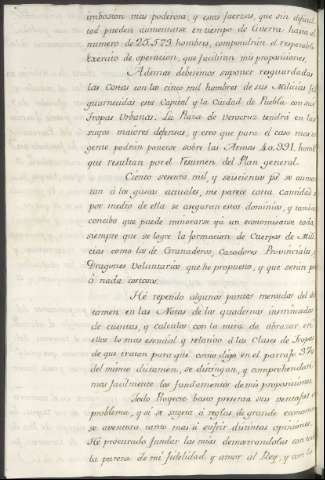 imbasion mas poderosa, y estas fuerzas, que sin dificul
tad pueden aumentarse en tiempo de Guerra hasta el
numero de 25.529. hombres, compondrán el respetable
Exercito de operacion, que facilitan mis proposiciones.
Ademas debemos suponer resguardadas
las costas con los cinco mil hombres de sus Milicias fi
guarnecidas esta Capital y la Ciudad de Puebla con sus
Tropas Urbanas. La Plaza de Veracruz tendrá en las
suyas maiores defensas, y creo que para el caso mas ur
gente podrán ponerse sobre las Armas 40.391. homb
que resultan por el Resumen del Plan general.
Ciento setenta mil, y seiscientos ps. se aumen
tan á los gastos actuales, me parece corta cantidad si
por medio de ella se aseguran estos dominios, y tambien
conosco que puede minorarse ó ya un economizarse toda,
siempre que se logre la formacion de Cuerpos de Mili
cias como los de Granaderos, Cazadores Provinciales y
Dragones Voluntarios que he propuesto, y que serán poco
ó nada costosos.
Hé repetido algunos puntos menudos del dic
tamen en las Notas de los quadernos insinuados
de cuentas, y calculos con la mira de abrazar en
ellos lo mas esencial y relativo á las Clases de Tropas
de que tratan para que como digo en el parrafo 376
del mismo dictamen, se distingan, y comprehendan
mas facilmente los fundamentos de mis proposiciones.
Todo Proyecto vasto presenta sus ventajas en
problema, y si se sujeta á reglas de grande economia
se aventura tanto mas á sufrir distintas opiniones.
Hé procurado fundar las mias demostrandolas con toda
la pureza de mi fidelidad y amor al Rey, y con la